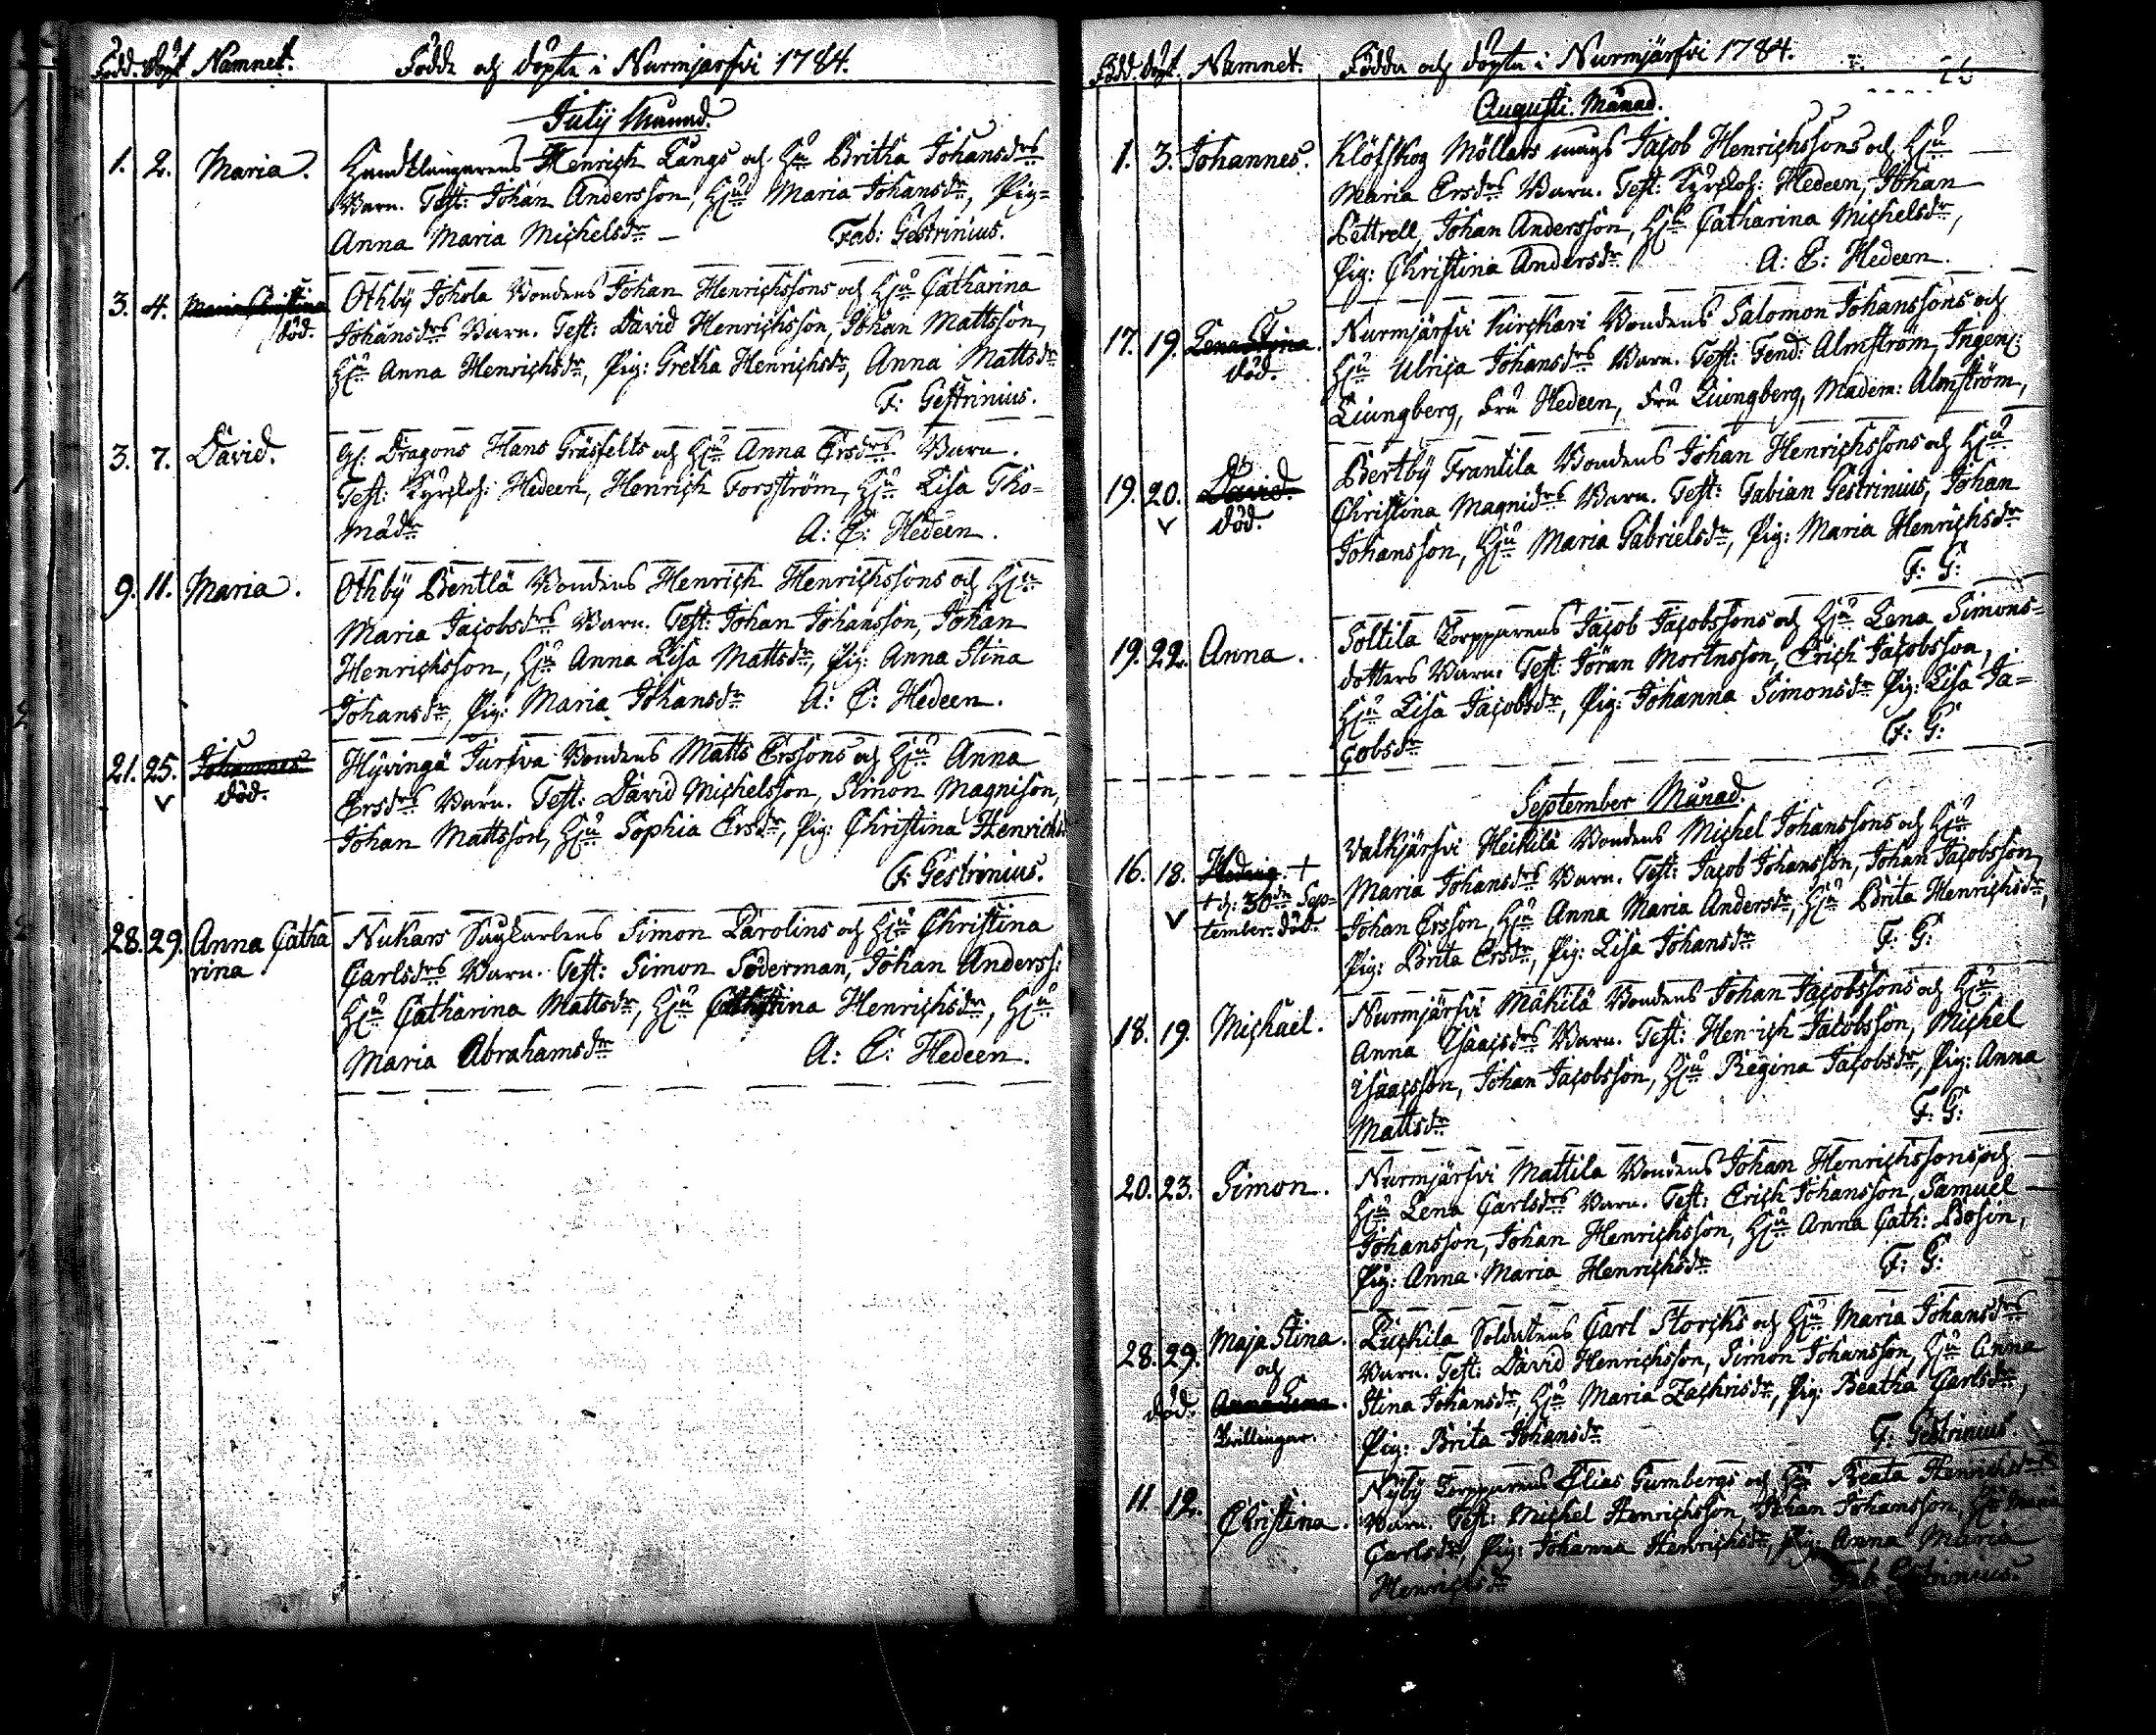 Född. Döpt Namnet. Födde och döpte i Nurmjärfvi 1784.
July Månad.
1. 2. Maria. Handtlangarens Henrich Längs och Hu Britha Johansdrs
Barn. Test: Johan Andersson, Hu Maria Johansdr, Pig=
Anna Maria Michelsdr — Fab: Gestrinius.
3. 4. Maria Christina Othby Johola Bondens Johan Henrichssons och Hu Catharina
död. Johansdrs Barn. Test: David Henrichsson, Johan Mattsson,
Hu Anna Henrichsdr, Pig: Gretha Henrichsdr, Anna Mattsdr
F: Gestrinius.
3. 7. David. Gl: Dragons Hans Gräsfelts och Hu Anna Ersdrs Barn.
Test: Kyrkoh: Hedeen, Henrich Forsström, Hu Lisa Tho=
madr A: E: Hedeen.
9. 11. Maria. Othby Bentlä Bondens Henrich Henrichssons och Hu
Maria Jacobsdrs Barn. Test: Johan Johansson, Johan
Henrichsson, Hu Anna Lisa Mattsdr, Pig: Anna Stina
Johansdr, Pig: Maria Johansdr A: E: Hedeen.
21. 25. Johannes. Hyvingä Jurfva Bondens Matts Erssons och Hu Anna
död. Ersdrs Barn. Test: David Michelsson, Simon Magnison,
Johan Mattsson, Hu Sophia Ersdr, Pig: Christina Henrichsd
F: Gestrinius.
28. 29. Anna Catha Nukars Simon Carolins och Hu Christina
rina Carlsdrs Barn. Test: Simon Söderman, Johan Anderss:
Hu Catharina Mattsdr, Hu Henrichsdr, Hu
Maria Abrahamsdr A: E: Hedeen.
Född. Döpt. Namnet. Födda och döpta i Nurmjärfvi 1784.
Augusti Månad.
1. 3. Johannes. Klöfskog Möllars mågs Jacob Henrichssons och Hu
Maria Ersdrs Barn. Test: Kyrkoh: Hedeen, Johan
Pettrell, Johan Andersson, Hu Catharina Michelsdr,
Pig: Christina Andersdr A: E: Hedeen.
17. 19. Lena Stina. Nurmjärfvi Kirckari Bondens Salomon Johanssons och
död. Hu Ulrica Johansdrs Barn. Test: Fend: Almström, Ingen:
Liungberg, Fru Hedeen, Fru Liungberg, Madem: Almström,
19. 20. David. Bertby Frantila Bondens Johan Henrichssons och Hu
död. Christina Magnidrs Barn. Test: Fabian Gestrinius, Johan
Johansson, Hu Maria Gabrielsdr, Pig: Maria Henrichsdr
F: G:
19. 22. Anna. Soltila Torpparens Jacob Jacobssons och Hu Lena Simons=
dotters Barn. Test: Jöran Mortnsson, Erich Jacobsson,
Hu Lisa Jacobsdr, Pig: Johanna Simonsdr Pig: Lisa Ja=
cobsdr F: G:
September Månad.
16. 18. Hedvig. + Valkjärfvi Heikilä Bondens Michel Johanssons och Hu
+ d: 30de Sep= Maria Johansdrs Barn. Test: Jacob Johansson, Johan Jacobsson,
tember. död. Johan Ersson, Hu Anna Maria Andersdr, Hu Brita Henrichsdr,
Pig: Brita Ersdr, Pig: Lisa Johansdr F: G:
18. 19. Michael. Nurmjärfvi Mäkilä Bondens Johan Jacobssons och Hu
Anna Isaacsdrs Barn. Test: Henrich Jacobsson, Michel
Isaacsson, Johan Jacobsson, Hu Regina Jacobsdr, Pig: Anna
Mattsdr F: G:
20. 23. Simon. Nurmjärfvi Mattila Bondens Johan Henrichssons och
Hu Lena Carlsdrs Barn. Test: Erich Johansson, Samuel
Johansson, Johan Henrichsson, Hu Anna Cath: Bosin,
Pig: Anna Maria Henrichsdr F: G:
28. 29. Maja Stina. Luckila Soldatens Carl Storcks och Hu Maria Johansdrs
och Barn. Test: David Henrichsson, Simon Johansson, Hu Anna
död. Anna Lena. Stina Johansdr, Hu Maria Zachrisdr, Pig: Beatha Carlsdr,
Tvillingar. Pig: Brita Johansdr F: Gestrinius.
11. 12. Christina. Nyby Torpparens Elias Gumbergs och Hu Beata Henrichsdrs
Barn. Test: Michel Henrichsson, Johan Johansson, Hu Maria
Carlsdr, Pig: Johanna Henrichsdr, Pig: Anna Maria
Henrichsdr Fab: Gestrinius.